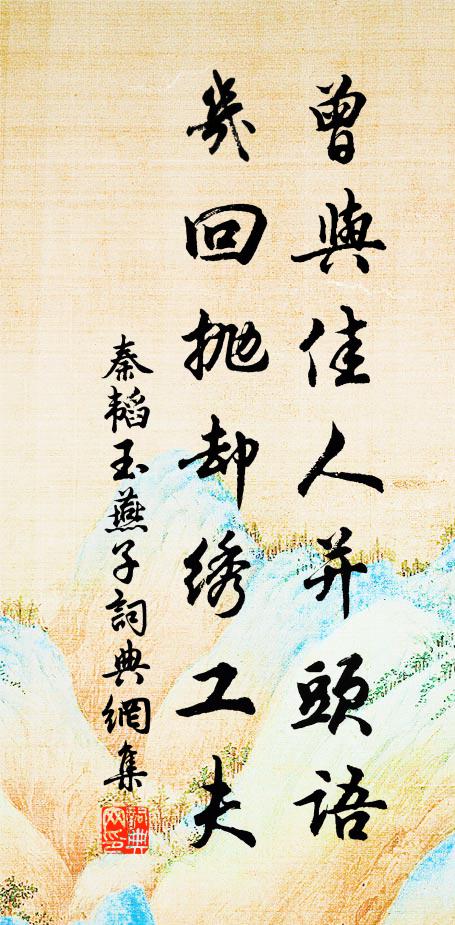 曾與佳人并頭語
幾回抛却綉工夫
秦韜玉燕子詞典網集
詞典
网印